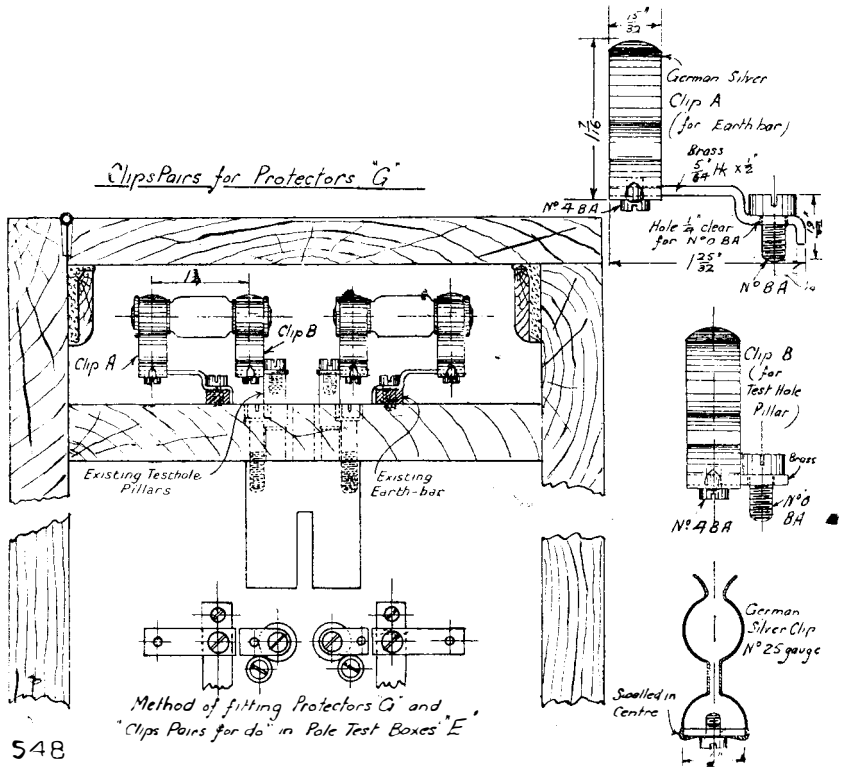 Clips Pairs for Protectors "G"
15/32"
1 7/16
German Silver
Clip A
(for Earth bar)
Brass
5/64" Hk x 1/2"
Nº 4 BA
Hole 1/4" clear
for Nº 0 BA
1 25/32"
Nº 0 BA
1 3/4"
Clip A
Clip B
Existing Testhole
Pillars
Existing
Earth-bar
Clip B
(for
Test Hole
Pillar)
Brass
Nº 0
BA
Nº 4 BA
German
Silver Clip
Nº 25 gauge
Swelled in
Centre
Method of fitting Protectors "G" and
"Clips Pairs for do" in Pole Test Boxes "E"
548